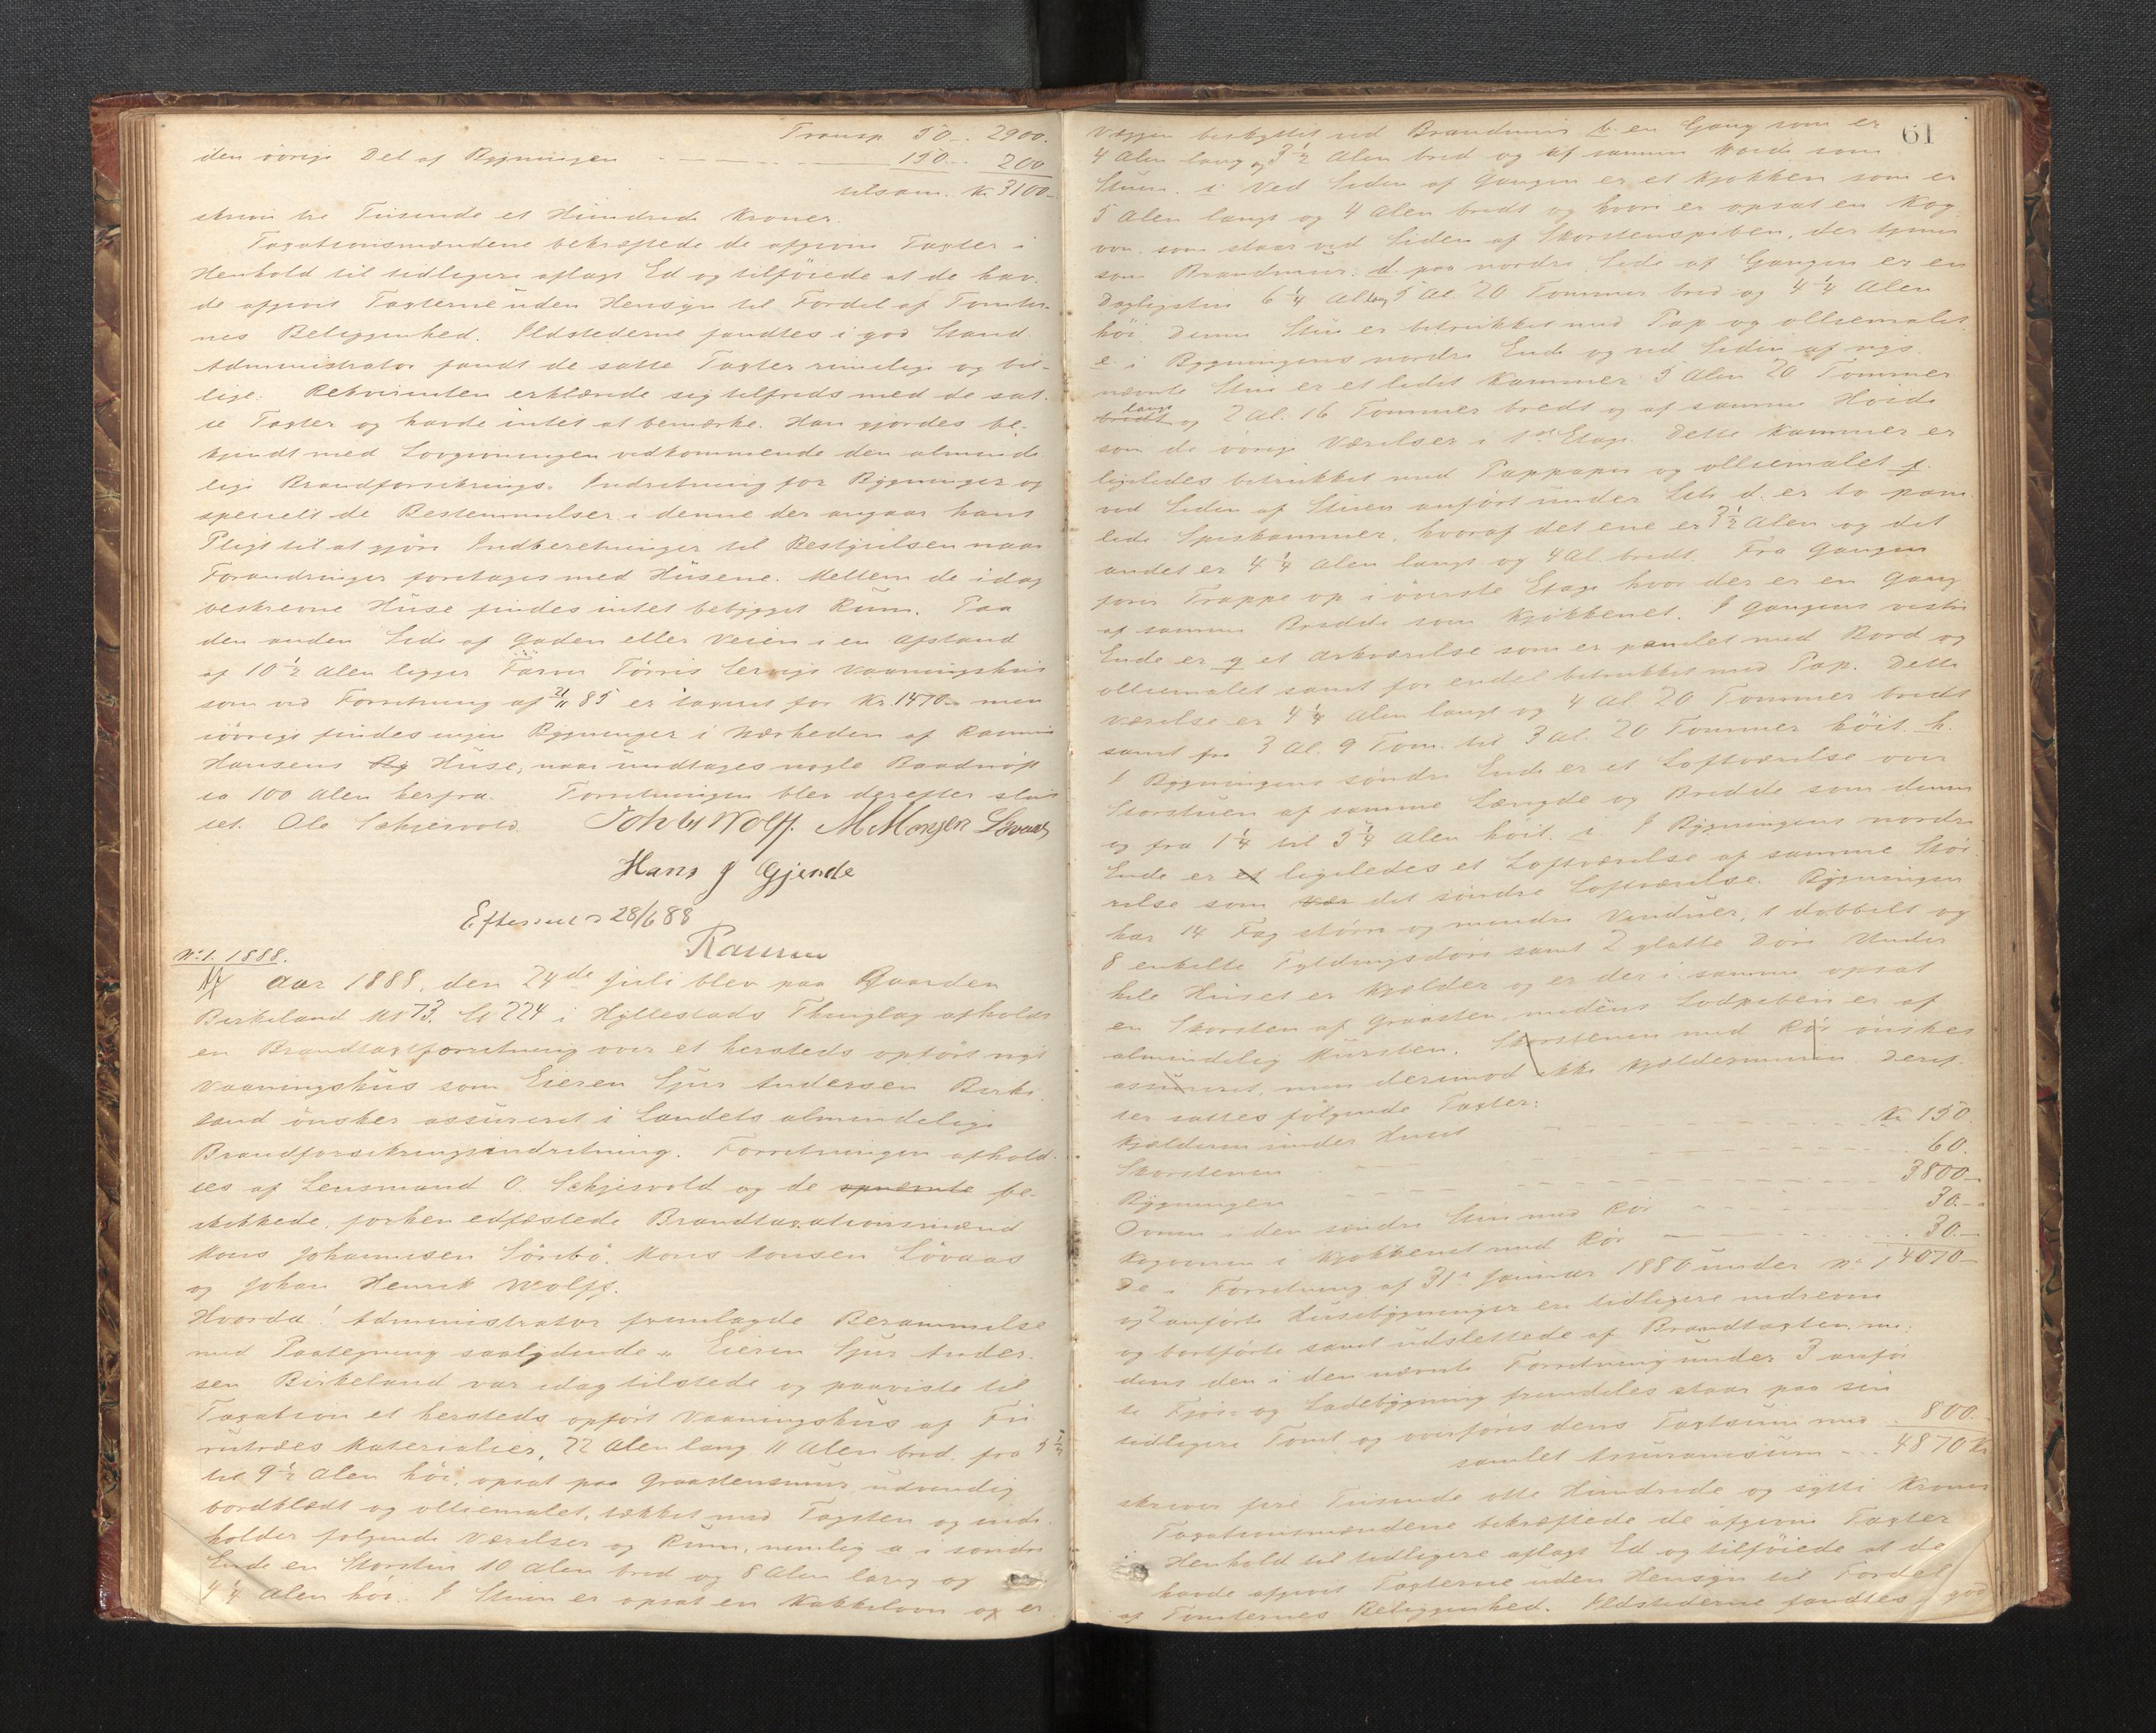 Transp. 50.– 2900.
den øvrige Del af Bygningen 150.– 200
tilsam. Kr 3100–
skriver tre Tusende et Hundrede Kroner.
Taxationsmændene bekræftede de afgivne Taxter i
Henhold til tidligere aflagt Ed og tilføiede at de hav-
de afgivet Taxterne uden Hensyn til Fordel af Tomter-
nes Beliggenhed. Ildstederne fandtes i god Stand.
Administrator fandt de satte Taxter rimelige og bil-
lige. Rekvirenten erklærede sig tilfreds med de sat-
te Taxter og havde intet at bemærke. Han gjordes be-
kjendt med Lovgivningen vedkommende den alminde-
lige Brandforsikrings-Indretning for Bygninger og
specielt de Bestemmelser i denne der angaar hans
Pligt til at gjøre Indberetninger til Bestyrelsen naar
Forandringer foretages med Husene. Mellem de idag
beskrevne Huse findes intet bebygget Rum. Paa
den anden Side af Gaden eller Veien i en Afstand
af 10½ Alen ligger Farver Tørris Vaaningshus
som ved Forretning af 21/11 85 er taxeret for Kr. 1470– men
iøvrigt findes ingen Bygninger i Nærheden af Rasmus
Hansens By Huse, naar undtages nogle Baadnøst
ca 100 Alen herfra. Forretningen blev derefter slut-
tet. Ole Schjervold. Joh H Wolff. M Monsen Løvaas
Hans J Gjerde
Efterseet 28/6 88
No 1. 1888.
Aar 1888, den 24de Juli blev paa Gaarden
Birkeland No 73. Lb 224 i Hyllestads Thinglag afholdt
en Brandtaxtforretning over et hersteds opført nyt
Vaaningshus som Eieren Sjur Andersen Birke-
land ønsker assureret i Landets almindelige
Brandforsikringsindretning. Forretningen afhold-
tes af Lensmand O. Schjervold og de opnævnte be-
skikkede, forhen edfæstede Brandtaxationsmænd
Mons Johannesen Sørebø, Mons Monsen Løvaas
og Johan Henrik Wolff.
Hvorda! Administrator fremlagde Berammelse
med Paategning saalydende „ Eieren Sjur Ander-
sen Birkeland var idag tilstede og paaviste til
Taxation et hersteds opført Vaaningshus af Fu-
rutræes Materialier, 22 Alen lang 11 Alen bred fra 5½
til 9½ Alen høi, opsat paa Graastensmur, udvendig
bordklædt og olliemalet, tækket med Tagsten og inde-
holder følgende Værelser og Rum, nemlig a i søndre
Ende en Storstue 10 Alen bred og 8 Alen lang og
4¼ Alen høi. I Stuen er opsat en Kakkelovn og er
61
Væggen beskyttet ved Brandmur b. en Gang som er
4 Alen lang og 3½ Alen bred og af samme Høide som
Stuen. c Ved Siden af Gangen er et Kjøkken som er
5 Alen langt og 4 Alen bredt og hvori er opsat en Kog-
ovn som staar ved Siden af Skorstenspiben, der tjener
som Brandmur. d. paa nordre Side af Gangen er en
Dagligstue 6¼ Al lang 5 Al. 20 Tommer bred og 4¼ Alen
høi. Denne Stue er betrukket med Pap og olliemalet.
e i Bygningens nordre Ende og ved Siden af nys-
nævnte Stue er et lidet Kammer 5 Alen 20 Tommer
bredt langt og 2 Al. 16 Tommer bredt og af samme Høide
som de øvrige Værelser i 1ste Etage. Dette Kammer er
ligeledes betrukket med Pappapir og olliemalet. f.
ved Siden af Stuen anført under Litr d. er to pane-
lede Spiskammer, hvoraf det ene er 3½ Alen og det
andet er 4¼ Alen langt og 4 Al. bredt. Fra Gangen
fører Trappe op i øverste Etage hvor der er en Gang
af samme Bredde som Kjøkkenet. I Gangens vestre
Ende er g et Arkværelse som er panelet med Bord og
olliemalet samt for endel betrukket med Pap. Dette
Værelse er 4¼ Alen langt og 4 Al. 20 Tommer bredt
samt fra 3 Al. 9 Tom. til 3 Al. 20 Tommer høit. h.
I Bygningens søndre Ende er et Loftværelse over
Storstuen af samme Længde og Bredde som denne
og fra 1¼ til 5¼ Alen høit. i. I Bygningens nordre
Ende er et ligeledes et Loftværelse af samme Stør-
relse som det søndre Loftværelse. Bygningen
har 14 Fag større og mindre Vinduer, 1 dobbelt og
8 enkelte Fyldingsdøre samt 2 glatte Døre. Under
hele Huset er Kjælder og er der i samme opsat
en Skorsten af Graasten, medens Lodpiben er af
almindelig Mursten. Skorstenen med Rør ønskes
assureret, men derimod ikke Kjældermuren. Deref-
ter sattes følgende Taxter:
Kjælderen under Huset Kr 150.
Skorstenen 60.
Bygningen 3800–
Ovnen i den søndre Stue med Rør 30.–
Kogovnen i Kjøkkenet med Rør 30.–
De i Forretning af 31te Januar 1880 under No 1 4070–
og 2 anførte Husebygninger ere tidligere nedrevne
og bortførte samt udslettede af Brandtaxten, me-
dens den i den nævnte Forretning under 3 anfør-
te Fjøs- og Ladebygning fremdeles staar paa sin
tidligere Tomt og overføres dens Taxtsum med 800.–
samlet Assurancesum 4870 Kr
skriver fire Tusende otte Hundrede og sytti Kroner
Taxationsmændene bekræftede de afgivne Taxter
Henhold til tidligere aflagt Ed og tilføiede at de
havde afgivet Taxterne uden Hensyn til Fordel
af Tomternes Beliggenhed. Ildstederne fandtes i god